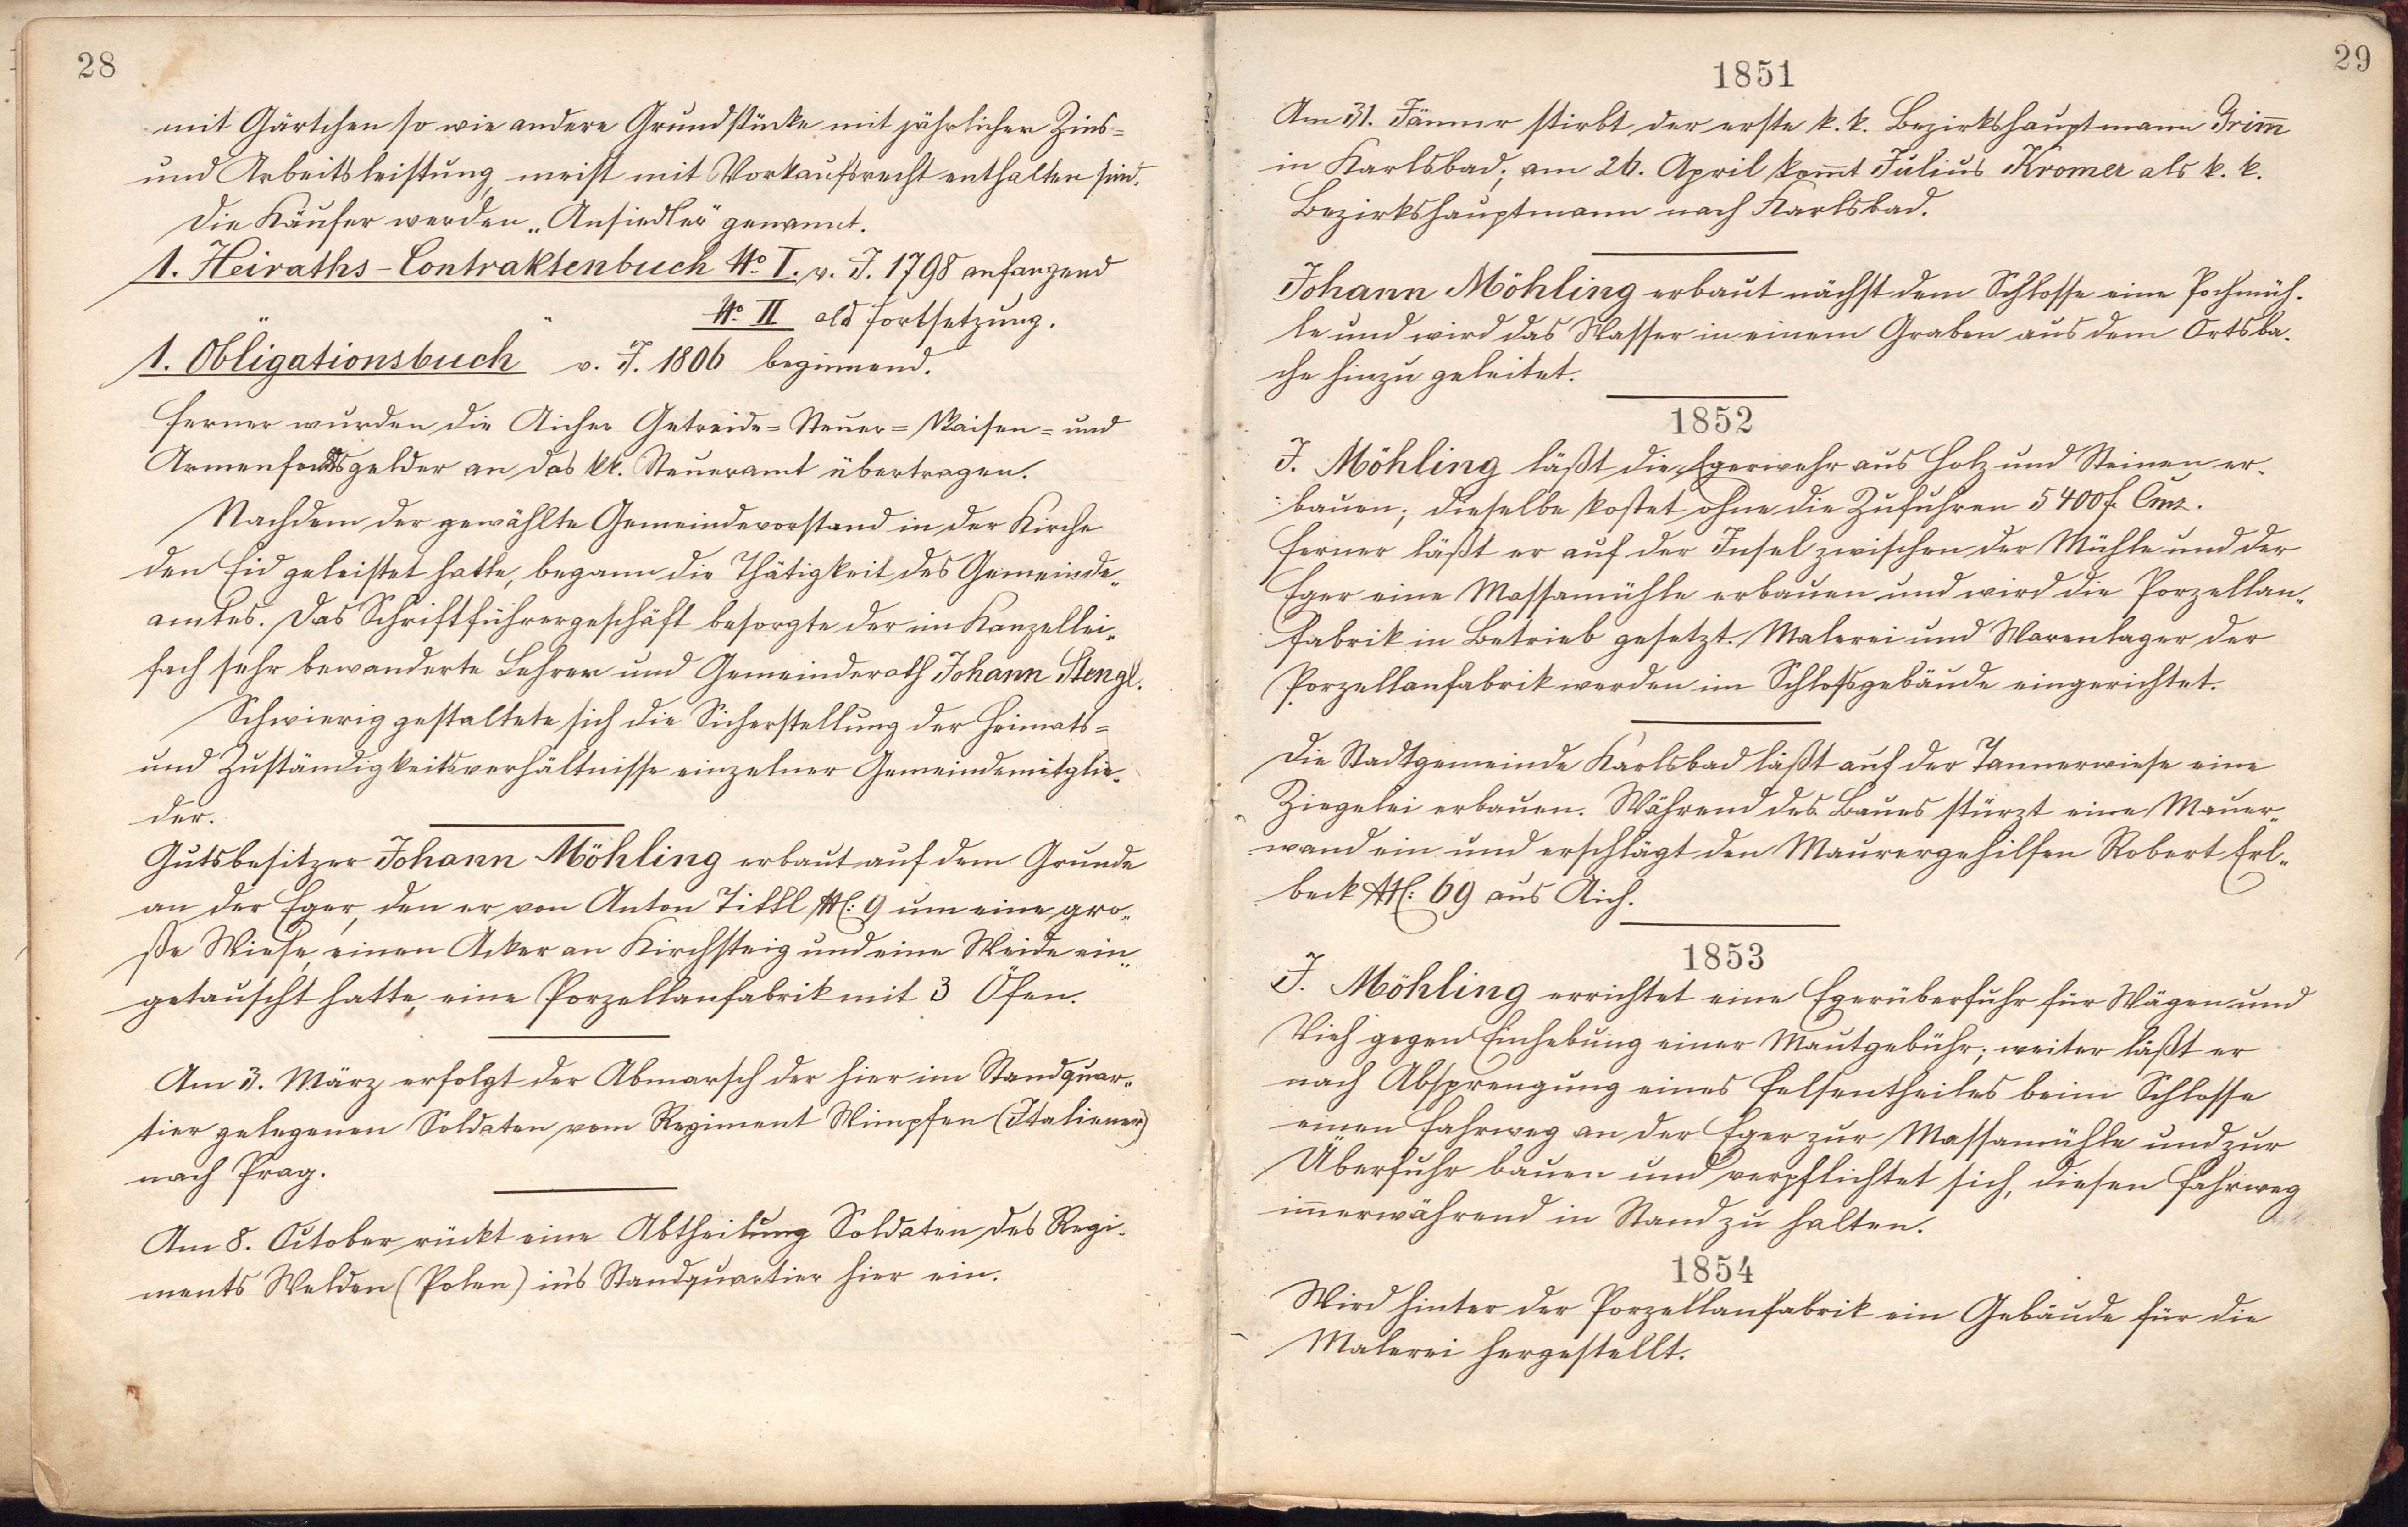 28
mit Gärtchen so wie andere Grundstücke mit jährlicher Zins=
und Arbeitsleistung, meist mit Vorkaufsrecht enthalten sind.
Die Käufer werden „Ansiedler" genannt.
1. Heiraths-Contraktenbuch No I. v. J. 1798 anfangend
" " No II als Fortsetzung.
1. Obligationsbuch v. J. 1806 beginnend.
Ferner wurden die Aicher Getreide= Steuer= Waisen= und
Armenfondsgelder an das kk. Steueramt übertragen.
Nachdem der gewählte Gemeindevorstand in der Kirche
den Eid geleistet hatte, begann die Thätigkeit des Gemeinde„
amtes. Das Schriftführergeschäft besorgte der im Kanzellei„
fach sehr bewanderte Lehrer und Gemeinderath Johann Stengl.
Schwierig gestaltete sich die Sicherstellung der Heimats=
und Zuständigkeitsverhältnisse einzelner Gemeindemitglie„
der.
Gutsbesitzer Johann Möhling erbaut auf dem Grunde
an der Eger, den er von Anton Tittl N: 9 um eine gro„
ße Wiese, einen Acker an Kirchsteig und eine Weide ein„
getauscht hatte, eine Porzellanfabrik mit 3 Öfen.
Am 3. März erfolgt der Abmarsch der hier im Standquar„
tier gelegenen Soldaten vom Regiment Wimpfen (Italiener)
nach Prag.
Am 8. October rückt eine Abtheilung Soldaten des Regi„
ments Welden (Polen) in's Standquartier hier ein.
29
1851
Am 31. Jänner stirbt der erste k. k. Bezirkshauptmann Grim̅
in Karlsbad; am 26. April kom̅t Julius Kromer als k. k.
Bezirkshauptmann nach Karlsbad.
Johann Möhling erbaut nächst dem Schlosse eine Pochmüh„
le und wird das Wasser in einem Graben aus dem Ortsba„
che hinzu geleitet.
1852
J. Möhling läßt die Egerwehr aus Holz und Steinen er„
bauen; dieselbe kostet ohne die Zufuhren 5400 f. Cmz.
Ferner läßt er auf der Insel zwischen der Mühle und der
Eger eine Massamühle erbauen und wird die Porzellan„
fabrik in Betrieb gesetzt. Malerei und Warenlager der
Porzellanfabrik werden im Schloßgebäude eingerichtet.
Die Stadtgemeinde Karlsbad läßt auf der Tannerwiese eine
Ziegelei erbauen. Während des Baues stürzt eine Mauer„
wand ein und erschlägt den Maurergehilfen Robert Erl„
beck N: 69 aus Aich.
1853
J. Möhling errichtet eine Egerüberfuhr für Wägen und
Vieh gegen Einhebung einer Mautgebühr; weiter läßt er
nach Absprengung eines Felsentheiles beim Schlosse
einen Fahrweg an der Eger zur Massamühle und zur
Überfuhr bauen und verpflichtet sich, diesen Fahrweg
im̅erwährend in Stand zu halten.
1854
Wird hinter der Porzellanfabrik ein Gebäude für die
Malerei hergestellt.